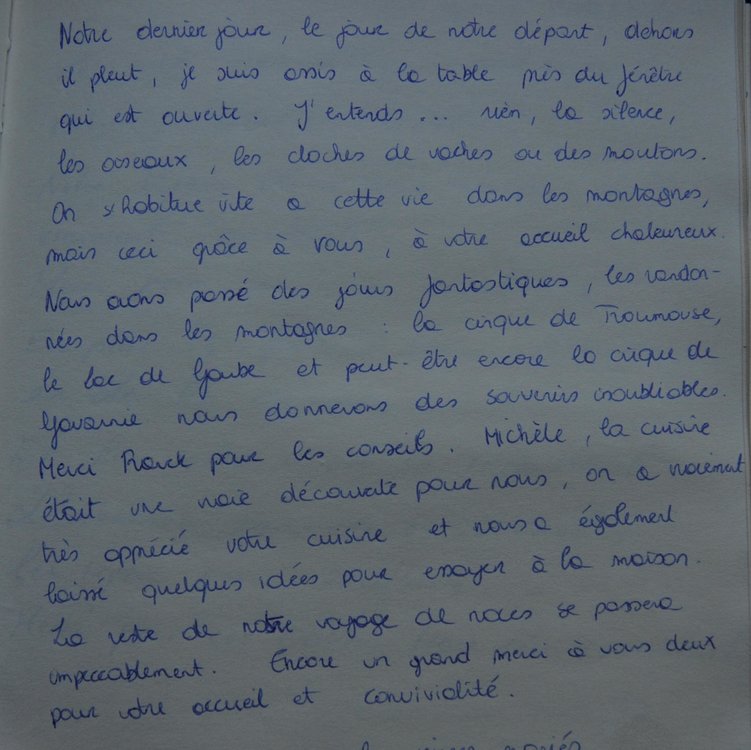 Notre dernier jour, le jour de notre départ, dehors
il pleut, je suis assis à la table près du fénêtre
qui est ouverte. J'entends... rien, la silence,
les oiseaux, les cloches de vaches ou des moutons.
On s'habitue vite a cette vie dans les montagnes,
mais ceci grâce à vous, à votre accueil chaleureux.
Nous avons passé des jours fantastiques, les randon-
nées dans les montagnes : la cirque de Troumouse,
le lac de Gaube et peut-être encore la cirque de
Gavarnie nous donnerons des souvenirs inoubliables.
Merci Franck pour les conseils. Michèle, la cuisine
était une vraie découverte pour nous, on a vraiment
très apprécié votre cuisine et nous a également
laissé quelques idées pour essayer à la maison.
La reste de notre voyage de noces se passera
impeccablement. Encore un grand merci à vous deux
pour votre accueil et convivialité.
mariés